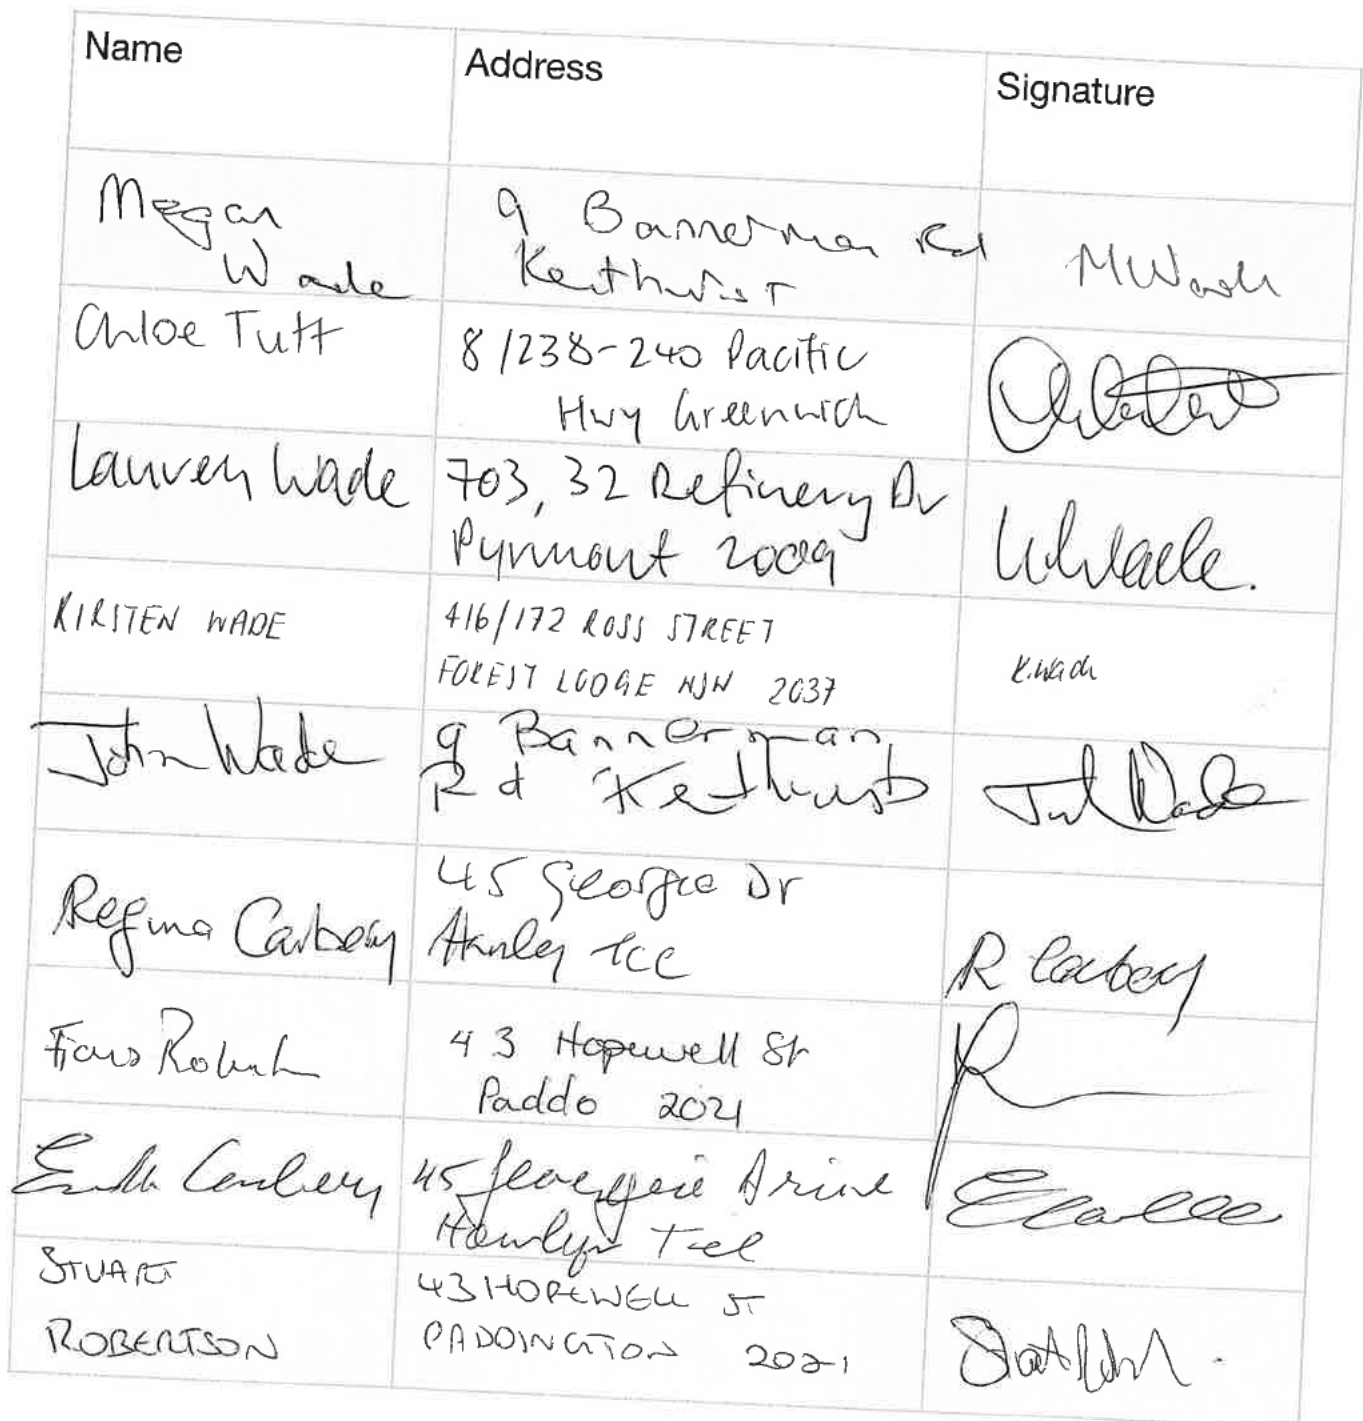 Name Address Signature
Megan
Wade
9 Bannerman Rd
Kenthurst
MWade
Chloe Tutt
8/238-240 Pacific
Hwy Greenwich
Lauren Wade
703, 32 Refinery Dr
Pyrmont 2009
KIRSTEN WADE
416/172 ROSS STREET
FOREST LODGE NSW 2037
K.Wade
John Wade
9 Bannerman
Rd Kenthurst
Regina Carbery
45 Georgie Dr
R Carbery
43 Hopewell St
Paddo 2021
Carbery
45 Georgie Drive
STUART
ROBERTSON
43 HOPEWELL ST
PADDINGTON 2021